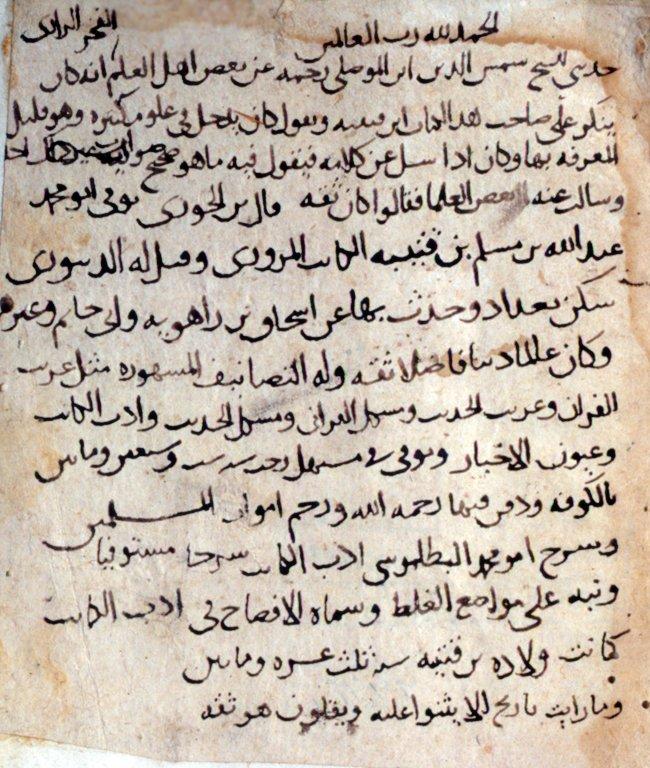 الحمد لله رب العالمين
الفخر الرازى
حدثنى الشيخ شمس الدين ابن الموصلى رحمه عن بعض اهل العلم انه كان
ينكر على صاحب هذا الكتاب ابن قتيبه ويقول كان يدخل فى علوم كثيره وهو قليل
المعرفه بها وكان اذا سىل عن كلامه فيقول فيه ما هو صحيح
وسالت عنه بعض العلما فقالوا كان ثقه قال بن الجوزى توفى ابو محمد
عبد الله بن مسلم بن قتيبه الكاتب المروزى وقيل له الدينورى
سكن بغداد وحدث بها عن اسحاق بن راهويه وابى حاتم وغيره
وكان عالما دينا فاضلا ثقه وله التصانيف المشهوره مثل غريب
القران وغريب الحديث ومشكل القران ومشكل الحديث وادب الكاتب
وعيون الاخبار وتوفى فى مستهل رجب سنه ست وسبعين وماىتين
بالكوفه ودفن فيها رحمه الله ورحم اموات المسلمين
وشرح ابو محمد البطليوسى ادب الكاتب شرحا مستوفيا
ونبه على مواضع الغلط وسماه الافصاح فى ادب الكاتب
كانت ولاده بن قتيبه سنه ثلث عشره وماىتين
وما رايت تاريخ الا يثنوا عليه ويقولون هو ثقه